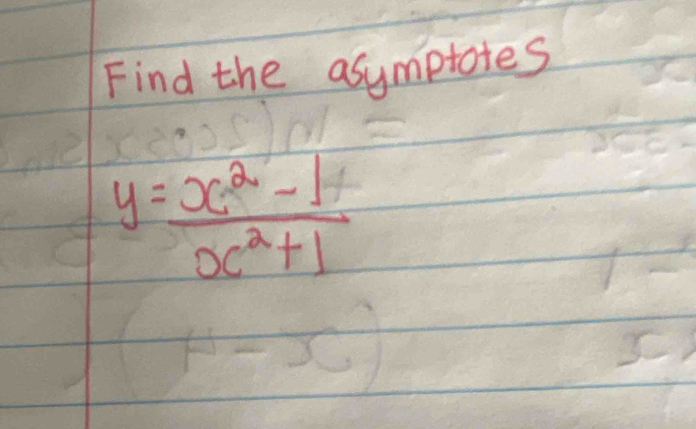 Find the asymptotes
y = x² - 1
x² + 1